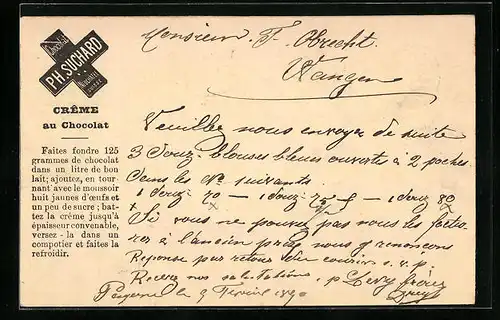 Chocolat
PH. SUCHARD
CRÊME
au Chocolat
Faites fondre 125
grammes de chocolat
dans un litre de bon
lait; ajoutez, en tour-
nant avec le moussoir
huit jaunes d'œufs et
un peu de sucre; bat-
tez la crême jusqu'à
épaisseur convenable,
versez-la dans un
compotier et faites la
refroidir.
Monsieur F. Obrecht.
Wangen
Veuillez nous envoyer de suite
3 Douz. blouses bleues ouvertes à 2 poches.
Dans les No suivants
1 douz 70 — 1 douz 75 — 1 douz 80
Si vous ne pouvez pas nous les factu-
rer à l'ancien prix nous y renonçons
Réponse par retour du courrier s.v.p.
Recevez nos salutations, p Levy frères
le 9 Février 1890